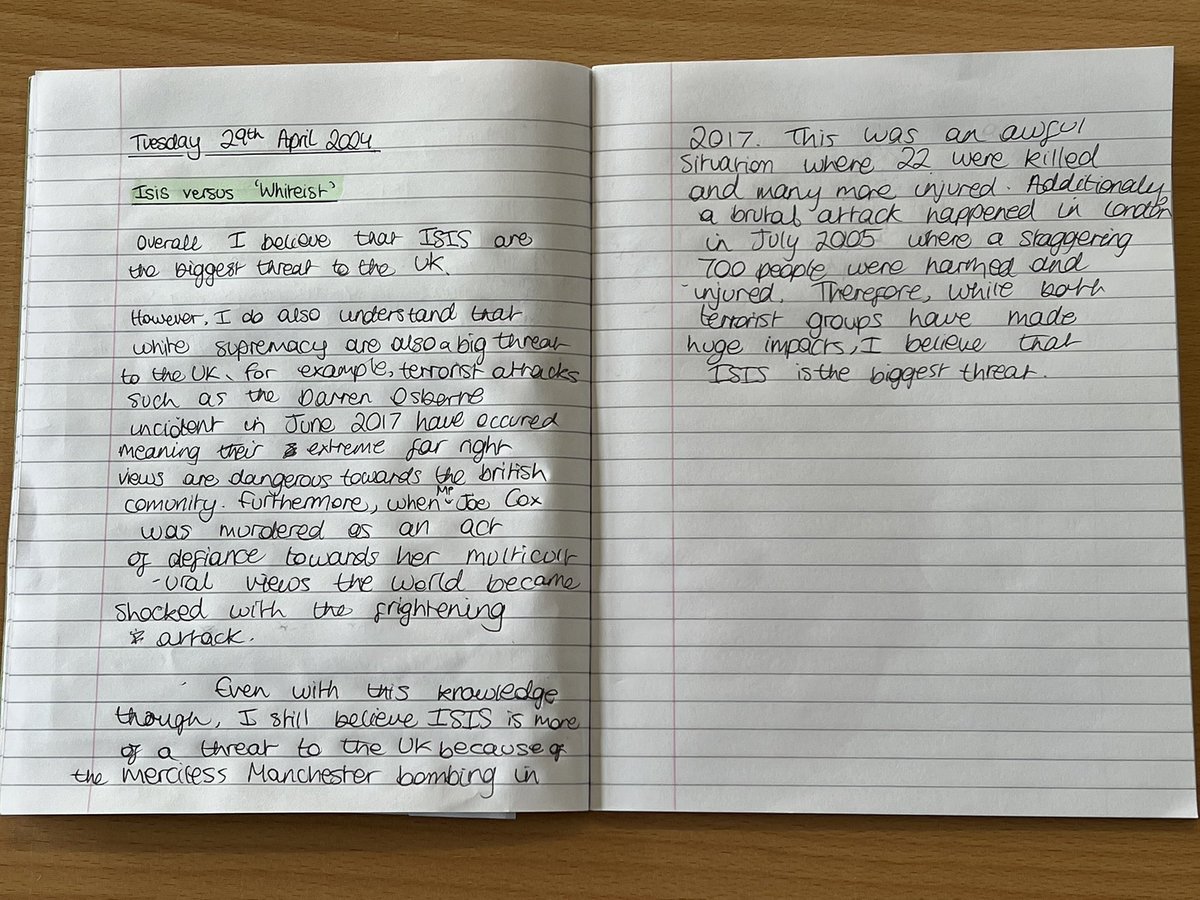 Tuesday 29th April 2024
Isis versus 'Whiteist'
Overall I believe that ISIS are
the biggest threat to the UK.
However, I do also understand that
white supremacy are also a big threat
to the UK, for example, terrorist attacks
such as the Darren Osborne
incident in June 2017 have occured
meaning their extreme far right
views are dangerous towards the british
comunity. Furthermore, when MP Joe Cox
was murdered as an act
of defiance towards her multicult
-ural views the world became
shocked with the frightening
attack.
Even with this knowledge
though, I still believe ISIS is more
of a threat to the UK because of
the merciless Manchester bombing in
2017. This was an awful
situation where 22 were killed
and many more injured. Additionaly,
a brutal attack happened in London
in July 2005 where a staggering
700 people were harmed and
injured. Therefore, while both
terrorist groups have made
huge impacts, I believe that
ISIS is the biggest threat.